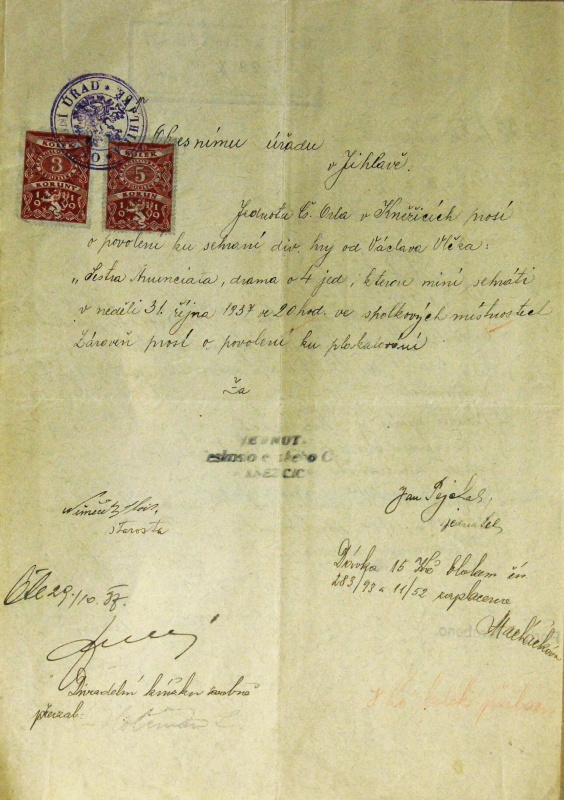 ÚŘAD
KOLEK
3
KORUNY
KOLEK
5
KORUN
Okresnímu úřadu
v Jihlavě.
Jednota Č. Orla v Kněžicích prosí
o povolení ku sehraní div. hry od Václava Vlčka:
„Sestra Anunciata, drama o 4 jed, kterou míní sehráti
v neděli 31. října 1937 ve 20 hod. ve spolkových místnostech
Zároveň prosí o povolení ku plakatování
Za
JEDNOT
KNĚŽIC
Jan
starosta
jednatel
Dávka 15 Kč blokem čís
283/93 a 11/52 zaplacena
Čte 29./10. 37.
Divadelní knížku
převzal: